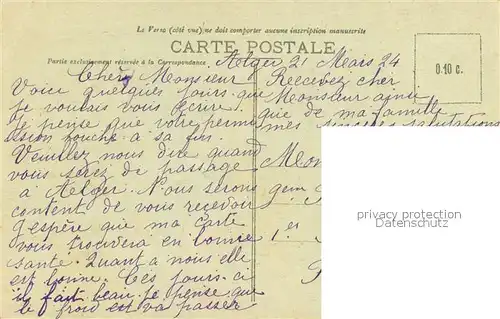 Le Verso (côté vue) ne doit comporter aucune inscription manuscrite
CARTE POSTALE
Partie exclusivement réservée à la Correspondance
0.10 c.
Alger 21 Mars 24
Cher Monsieur
Voici quelques jours que
je voulais vous écrire.
Je pense que votre permi
ssion touche à sa fin.
Veuillez nous dire quand
vous serez de passage
à Alger. Nous serons
content de vous recevoir
J'espère que ma carte
vous trouvera en bonne
santé. Quant à nous elle
est bonne. Ces jours-ci
il fait beau je pense que
le froid est va passer
Recevez cher
Monsieur ainsi
que de ma famille
mes sincères salutations
Mon
1er
privacy protection
Datenschutz